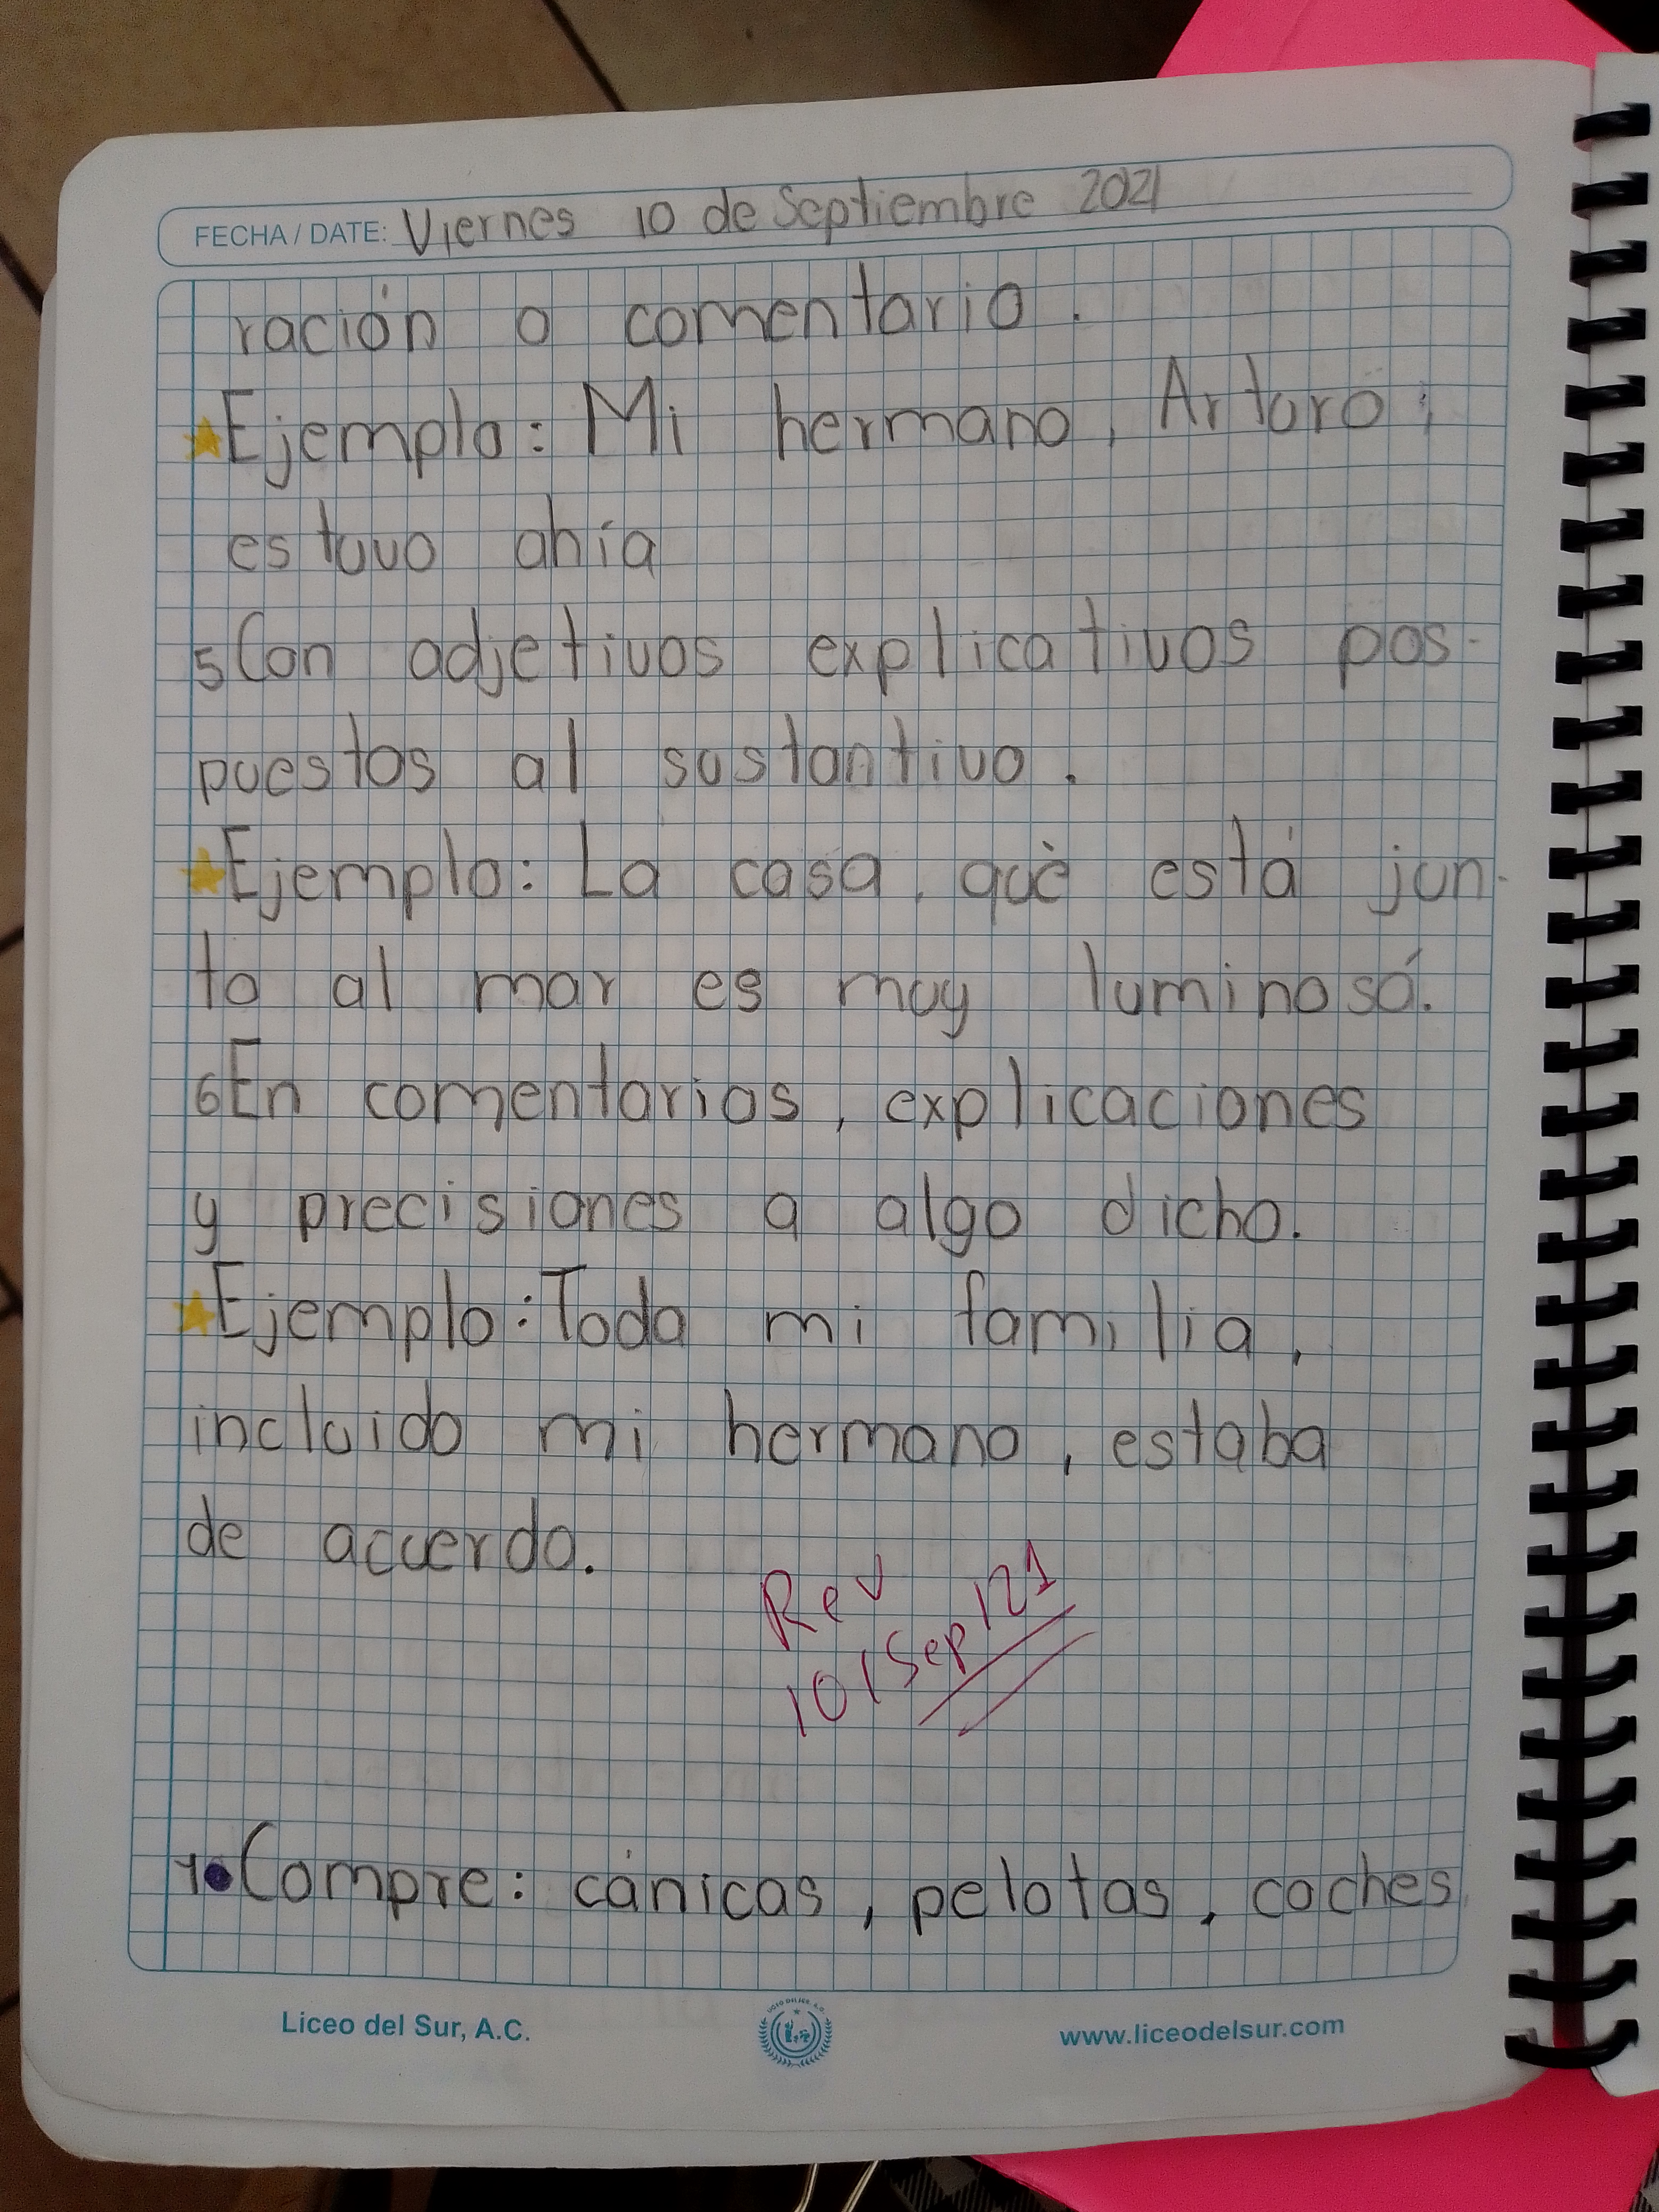 FECHA / DATE: Viernes 10 de Septiembre 2021
ración o comentario.
Ejemplo: Mi hermano, Arturo,
estuvo ahía
5 Con adjetivos explicativos pos-
puestos al sustantivo.
Ejemplo: La casa, qué está jun-
to al mar es muy luminosá.
6 En comentarios, explicaciones
y precisiones a algo dicho.
Ejemplo: Toda mi familia,
incluido mi hermano, estaba
de acuerdo.
Rev
10/Sep/21
1. Compre: cánicas, pelotas, coches
Liceo del Sur, A.C.
www.liceodelsur.com